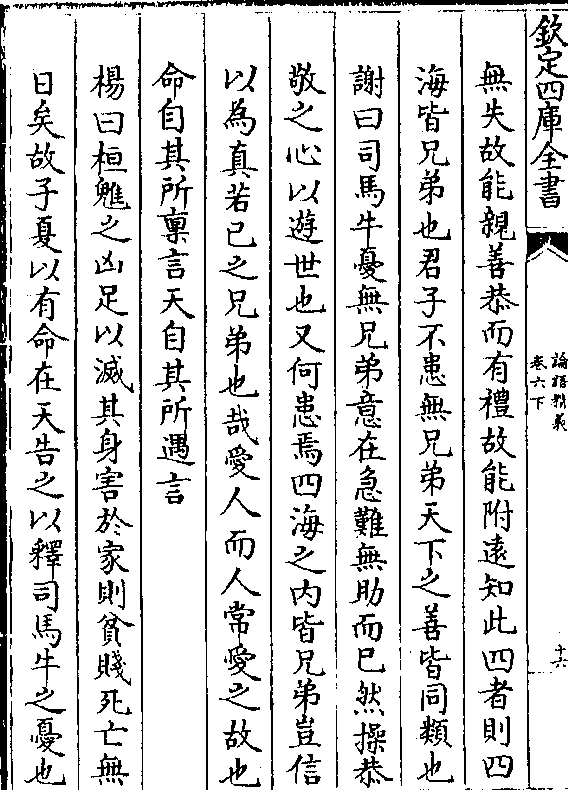 欽定四庫全書
論語精義
卷六下
十六
無失故能親善恭而有禮故能附逺知此四者則四
海皆兄弟也君子不患無兄弟天下之善皆同類也
謝曰司馬牛憂無兄弟意在急難無助而已然操恭
敬之心以遊世也又何患焉四海之内皆兄弟豈信
以為真若已之兄弟也哉愛人而人常愛之故也
命自其所稟言天自其所遇言
楊曰桓魋之凶足以滅其身害於家則貧賤死亡無
日矣故子夏以有命在天告之以釋司馬牛之憂也